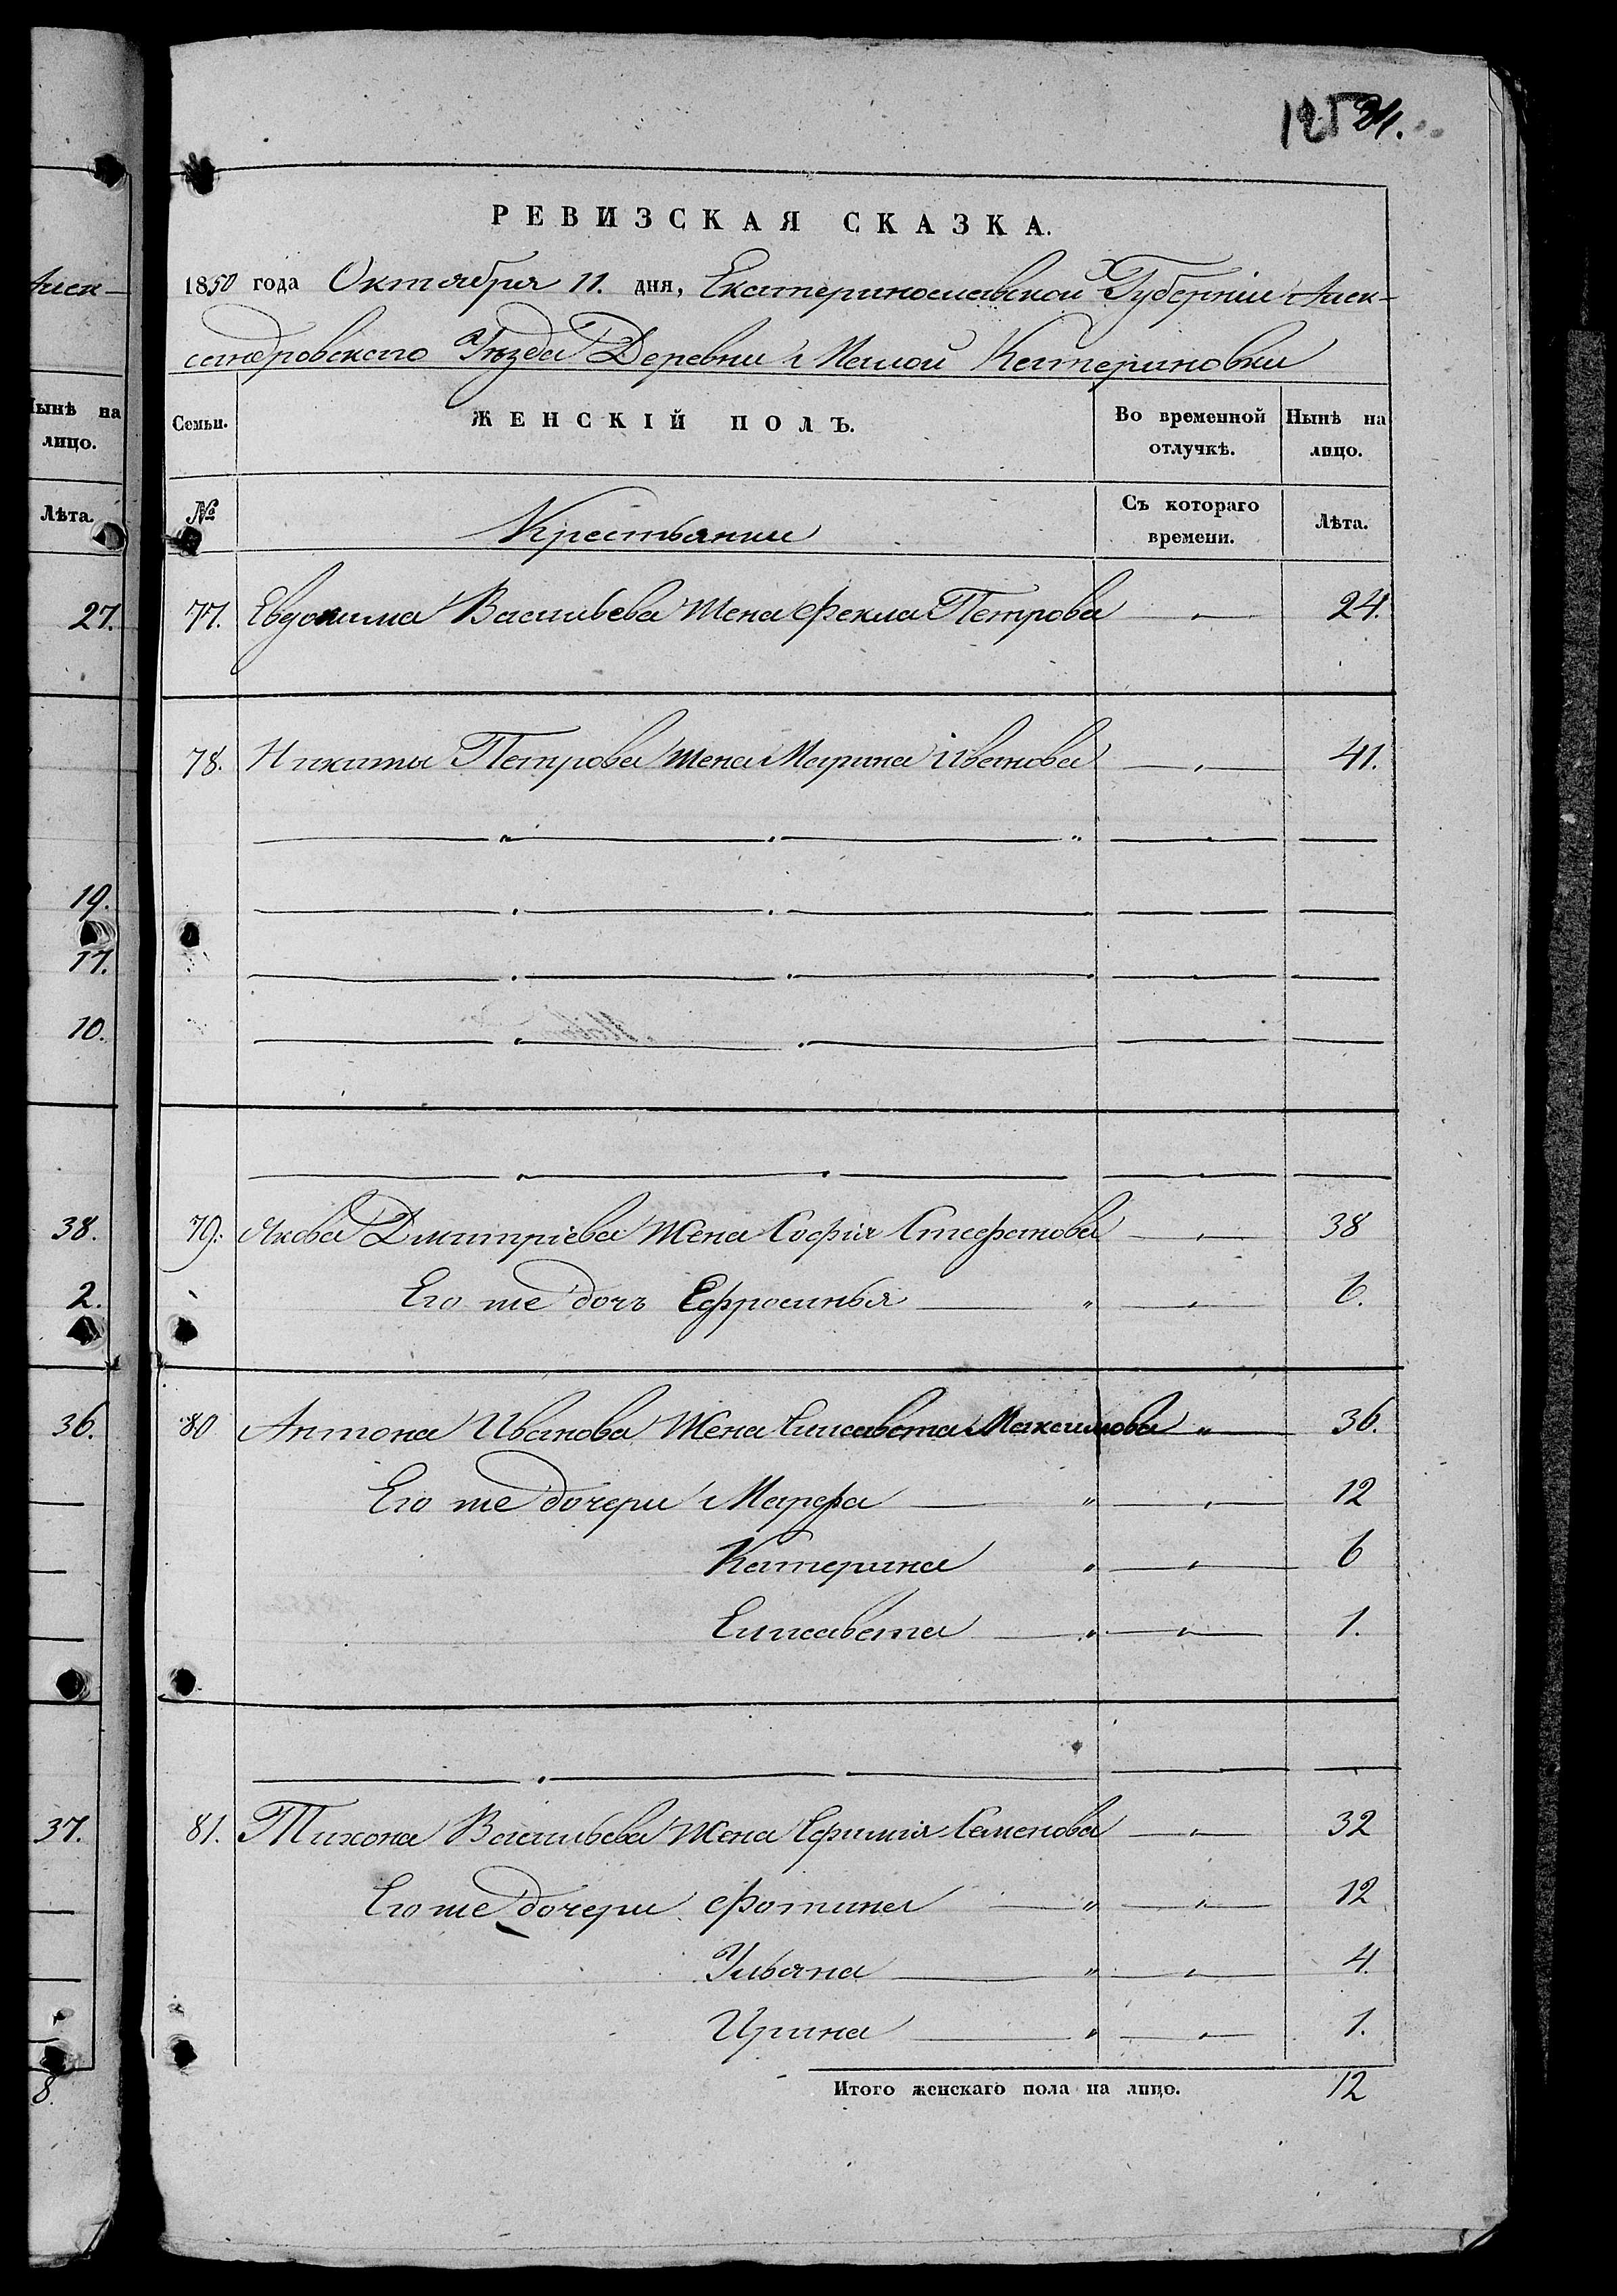 125 24.
РЕВИЗСКАЯ СКАЗКА.
1850 года Октября 11. дня, Екатеринославской Губерніи Алек-
сандровскаго Уѣзда Деревни Малой Катериновки
Семьи. ЖЕНСКІЙ ПОЛЪ. Во временной отлучкѣ. Нынѣ на лицо.
№ Крестьянии Съ котораго времени. Лѣта.
77. Евдокима Васильева жена Фекла Петрова — „ — 24.
78. Никиты Петрова жена Марина Иванова — „ — 41.
79. Якова Дмитріева жена Софія Стефанова — „ — 38
Его же дочь Ефросинья — „ — „ — 6.
80 Антона Иванова жена Елисавета Максимова „ — 36.
Его же дочери Марфа — „ — „ — 12
Катерина „ — „ — 6
Елисавета — „ — „ — 1.
81. Тихона Васильева жена Ефимія Семенова — „ — 32
Его же дочери Фотина — „ — „ — 12
Ульяна — „ — „ — 4.
Ирина — „ — „ — 1.
Итого женскаго пола на лицо. 12
Алек-
Нынѣ на
лицо.
Лѣта.
27.
19.
17.
10.
38.
2.
36.
37.
8.